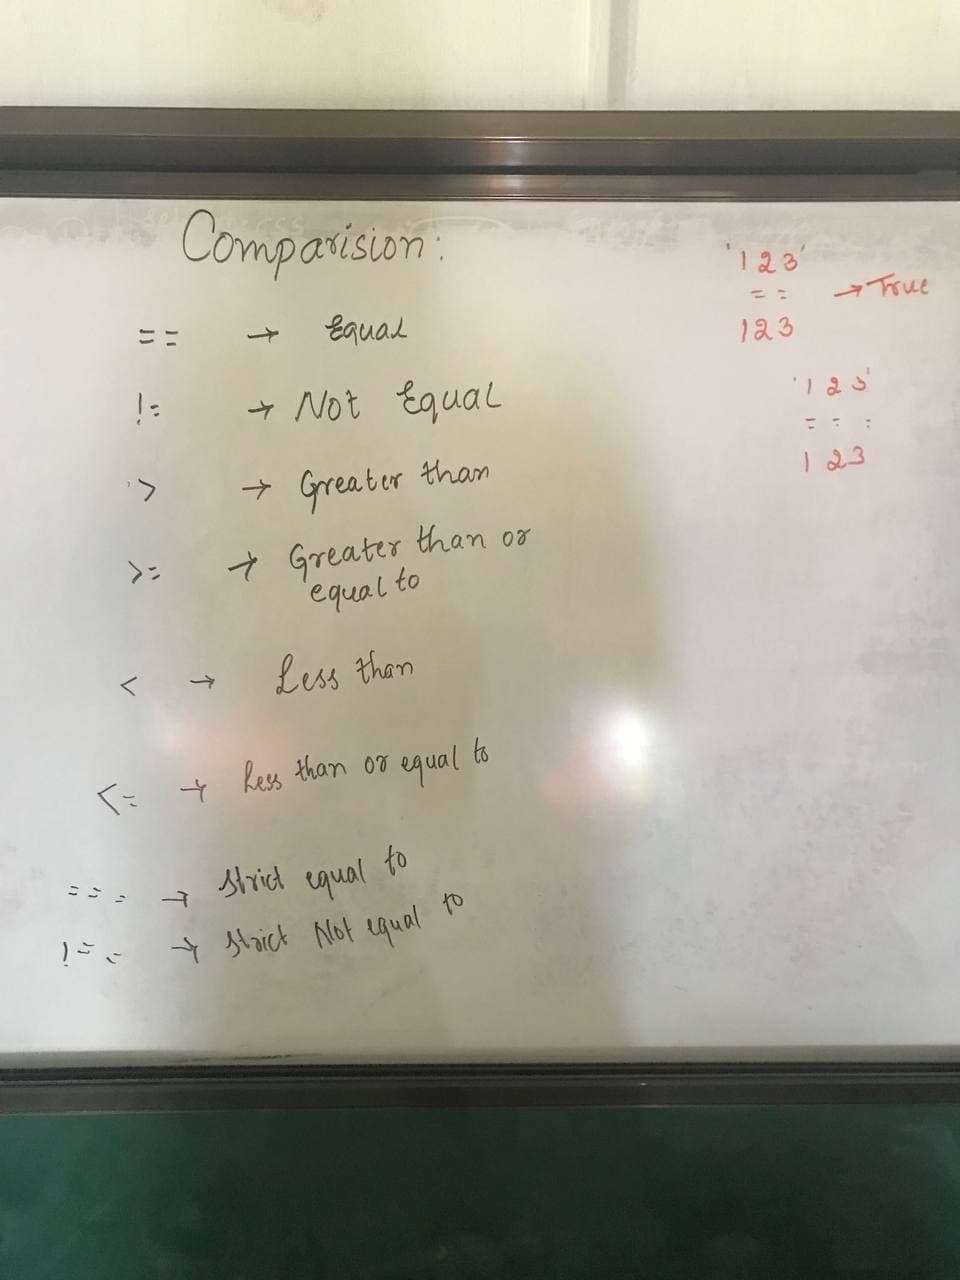 Comparision:
== → Equal
!= → Not Equal
> → Greater than
>= → Greater than or
equal to
< → Less than
<= → Less than or equal to
=== → Strict equal to
!== → Strict Not equal to
'123'
== → True
123
'123'
===
123